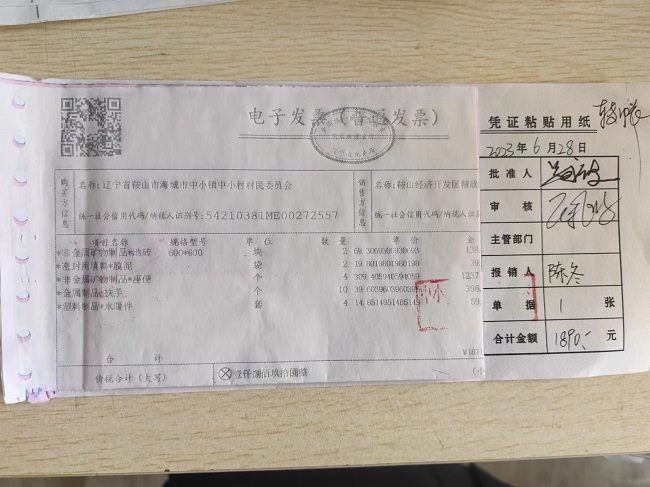 电子发票（普通发票）
凭证粘贴用纸
2023年6月28日
购买方信息
名称:辽宁省鞍山市海城市中小镇中小村村民委员会
统一社会信用代码/纳税人识别号:54210381ME00272557
销售方信息
名称:鞍山经济开发区
统一社会信用代码/纳税人识
批准人
审核
主管部门
报销人 陈冬
单据 1 张
合计金额 1890.- 元
项目名称 规格型号 单位 数量 单价 金
*非金属矿物制品*地砖 600*600 块 2 69.3069306930693 138.
*密封用填料*胶泥 袋 2 19.8019801980198 39.
*非金属矿物制品*座便 个 4 309.405940594059 1237.
*金属制品*扶手 个 10 39.6039603960396 396.
*塑料制品*水箱件 套 4 14.8514851485149 59.
合计 ¥1871
价税合计（大写） 壹仟捌佰玖拾圆整 （小